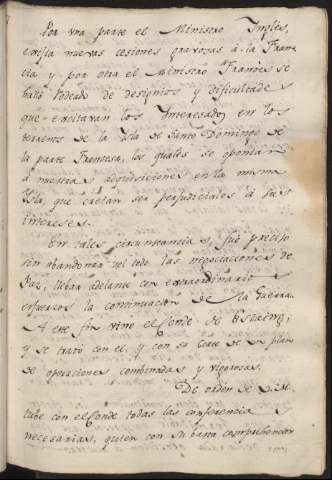 Por una parte el Ministro Ingles,
exigia nuevas cesiones gravosas à la Fran-
cia y por otra el Ministro Frances se
halló rodeado de designios y dificultades
que excitavan los Interesados en los
terrenos de la Isla de Santo Domingo de
la parte Francesa, los quales se oponian
á nuestras adquisiciones en la misma
Isla, que creían ser perjudiciales à sus
intereses.
En tales circunstancias, fué preciso
sin abandonar del todo las negociaciones de
Paz, llevar adelante con extraordinarios
esfuerzos la continuacion de la Guerra.
A este fin vino el Conde de Estaing;
y se trató con el, y con su Corte de un plan
de operaciones combinadas y vigorosas.
De orden de V.M.
tube con el Conde todas las conferencias
necesarias, quien con su basta comprehension